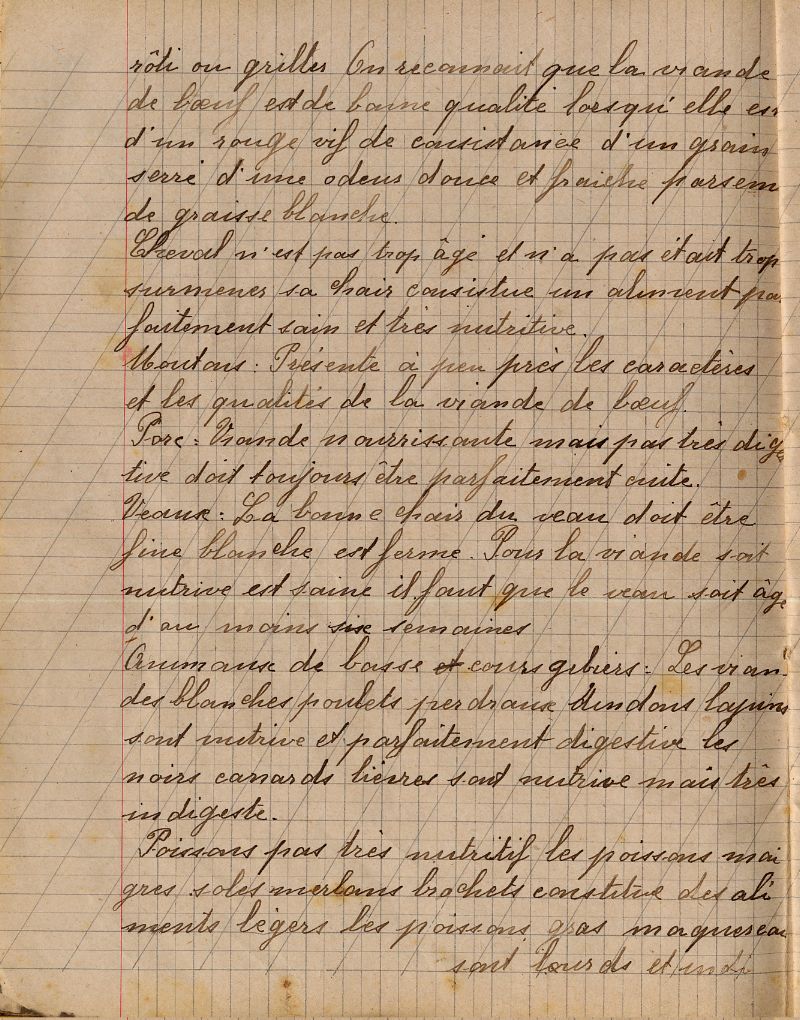 rôti ou grilles On reconnait que la viande
de bœuf est de bonne qualité lorsqu'elle es
d'un rouge vif de consistance d'un grain
serré d'une odeur douce et fraiche parsem
de graisse blanche.
Cheval n'est pas trop âgé et n'a pas était trop
surmener sa chair consistue un aliment par
faitement sain et très nutritive.
Moutons : Présente à peu près les caractères
et les qualités de la viande de bœuf.
Porc : Viande nourrissante mais pas très diges
tive doit toujours être parfaitement cuite.
Veaux : La bonne chair du veau doit être
fine blanche est ferme. Pour la viande soit
nutrive est saine il faut que le veau soit âgé
d'au moins six semaines
Animaux de basse et cours gibiers : Les vian-
des blanches poulets perdraux dindons lapins
sont nutrive et parfaitement digestive les
noirs canards lièvres sont nutrive mais très
indigeste.
Poissons pas très nutritif les poissons mai
gres soles merlans brochets constitue des ali
ments légers les poissons gras maquereau
sont lourds et indi